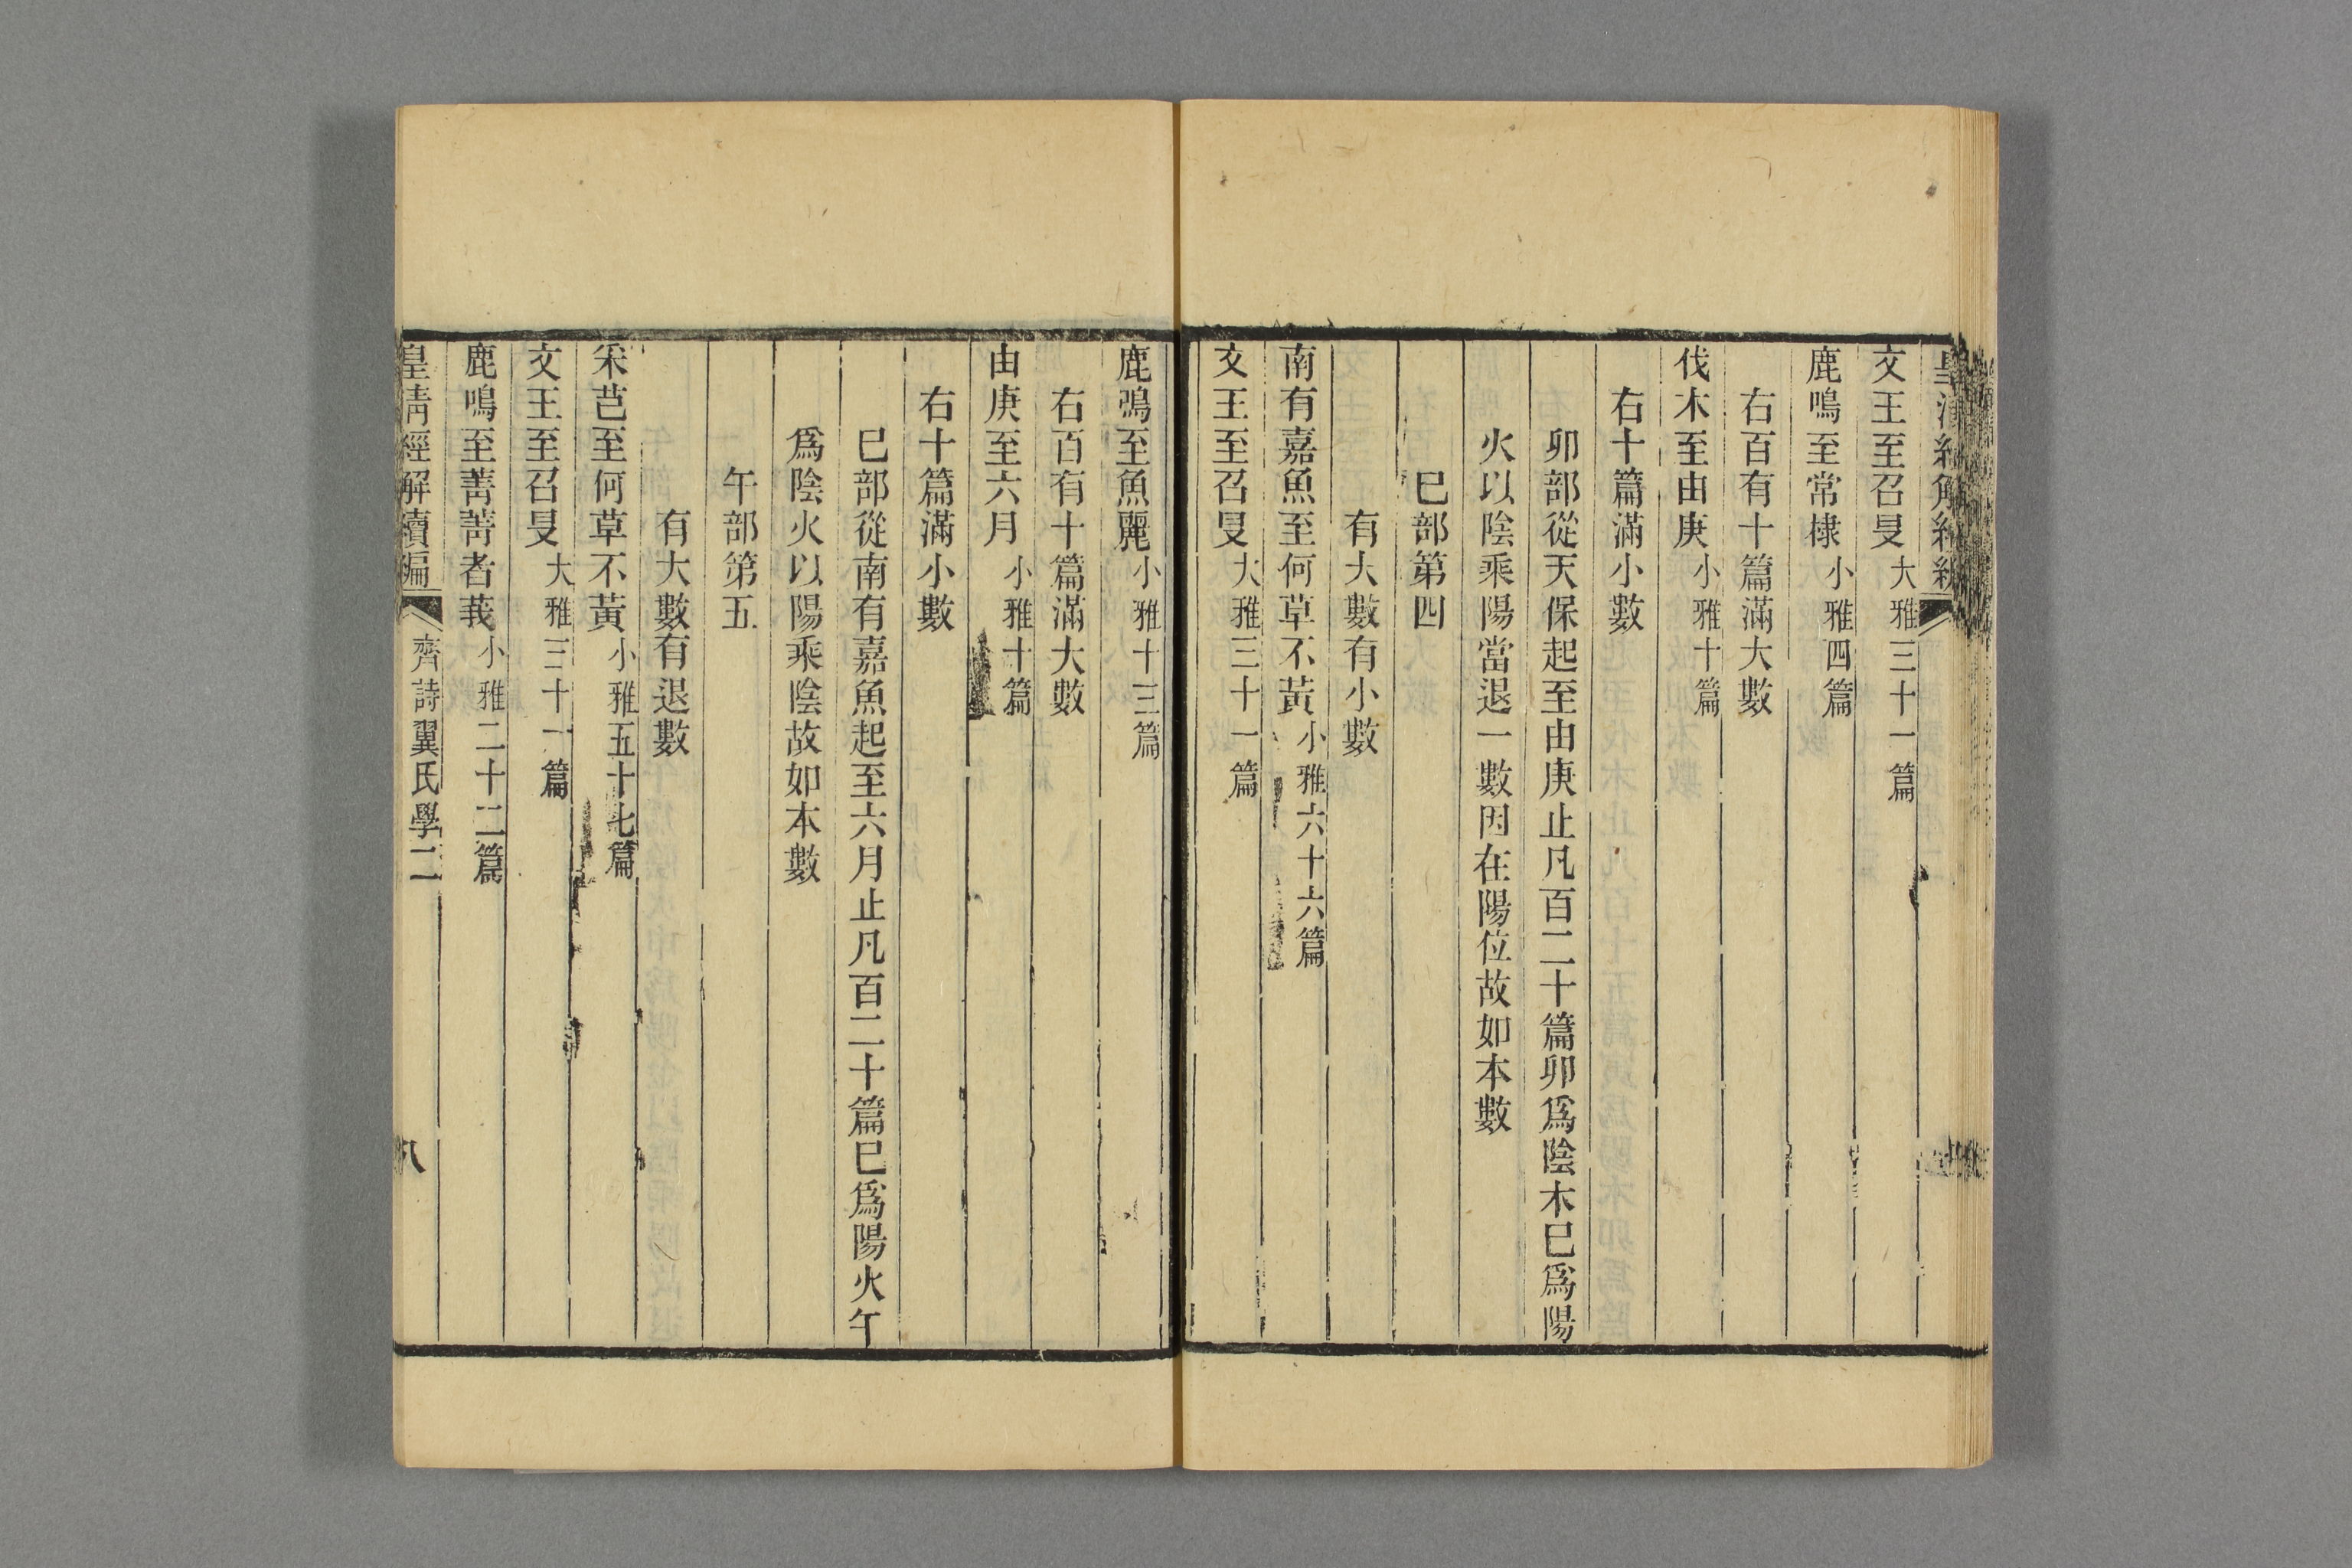 文王至召旻大雅三十一篇
鹿鳴至常棣小雅四篇
右百有十篇滿大數
伐木至由庚小雅十篇
右十篇滿小數
卯部從天保起至由庚止凡百二十篇卯爲陰木巳爲陽
火以陰乘陽當退一數因在陽位故如本數
巳部第四
有大數有小數
南有嘉魚至何草不黃小雅六十六篇
文王至召旻大雅三十一篇
鹿鳴至魚麗小雅十三篇
右百有十篇滿大數
由庚至六月小雅十篇
右十篇滿小數
巳部從南有嘉魚起至六月止凡百二十篇巳爲陽火午
爲陰火以陽乘陰故如本數
午部第五
有大數有退數
采芑至何草不黃小雅五十七篇
文王至召旻大雅三十一篇
鹿鳴至菁菁者莪小雅二十二篇
皇清經解續編 齊詩翼氏學二 八